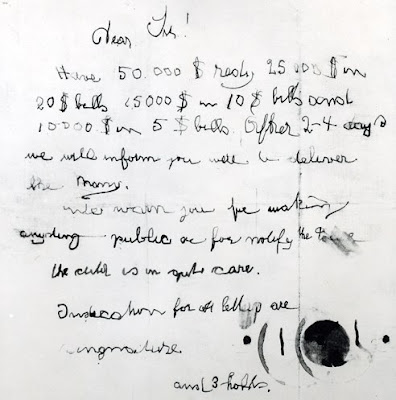 Dear Sir!
Have 50.000 $ redy 25 000 $ in
20 $ bills 15000 $ in 10 $ bills and
10000 $ in 5 $ bills After 2-4 days
we will inform you were to deliver
the Mony.
We warn you for making
anyding public or for notify the Police
the child is in gut care.
Indication for all letters are
singnature
and 3 holds.